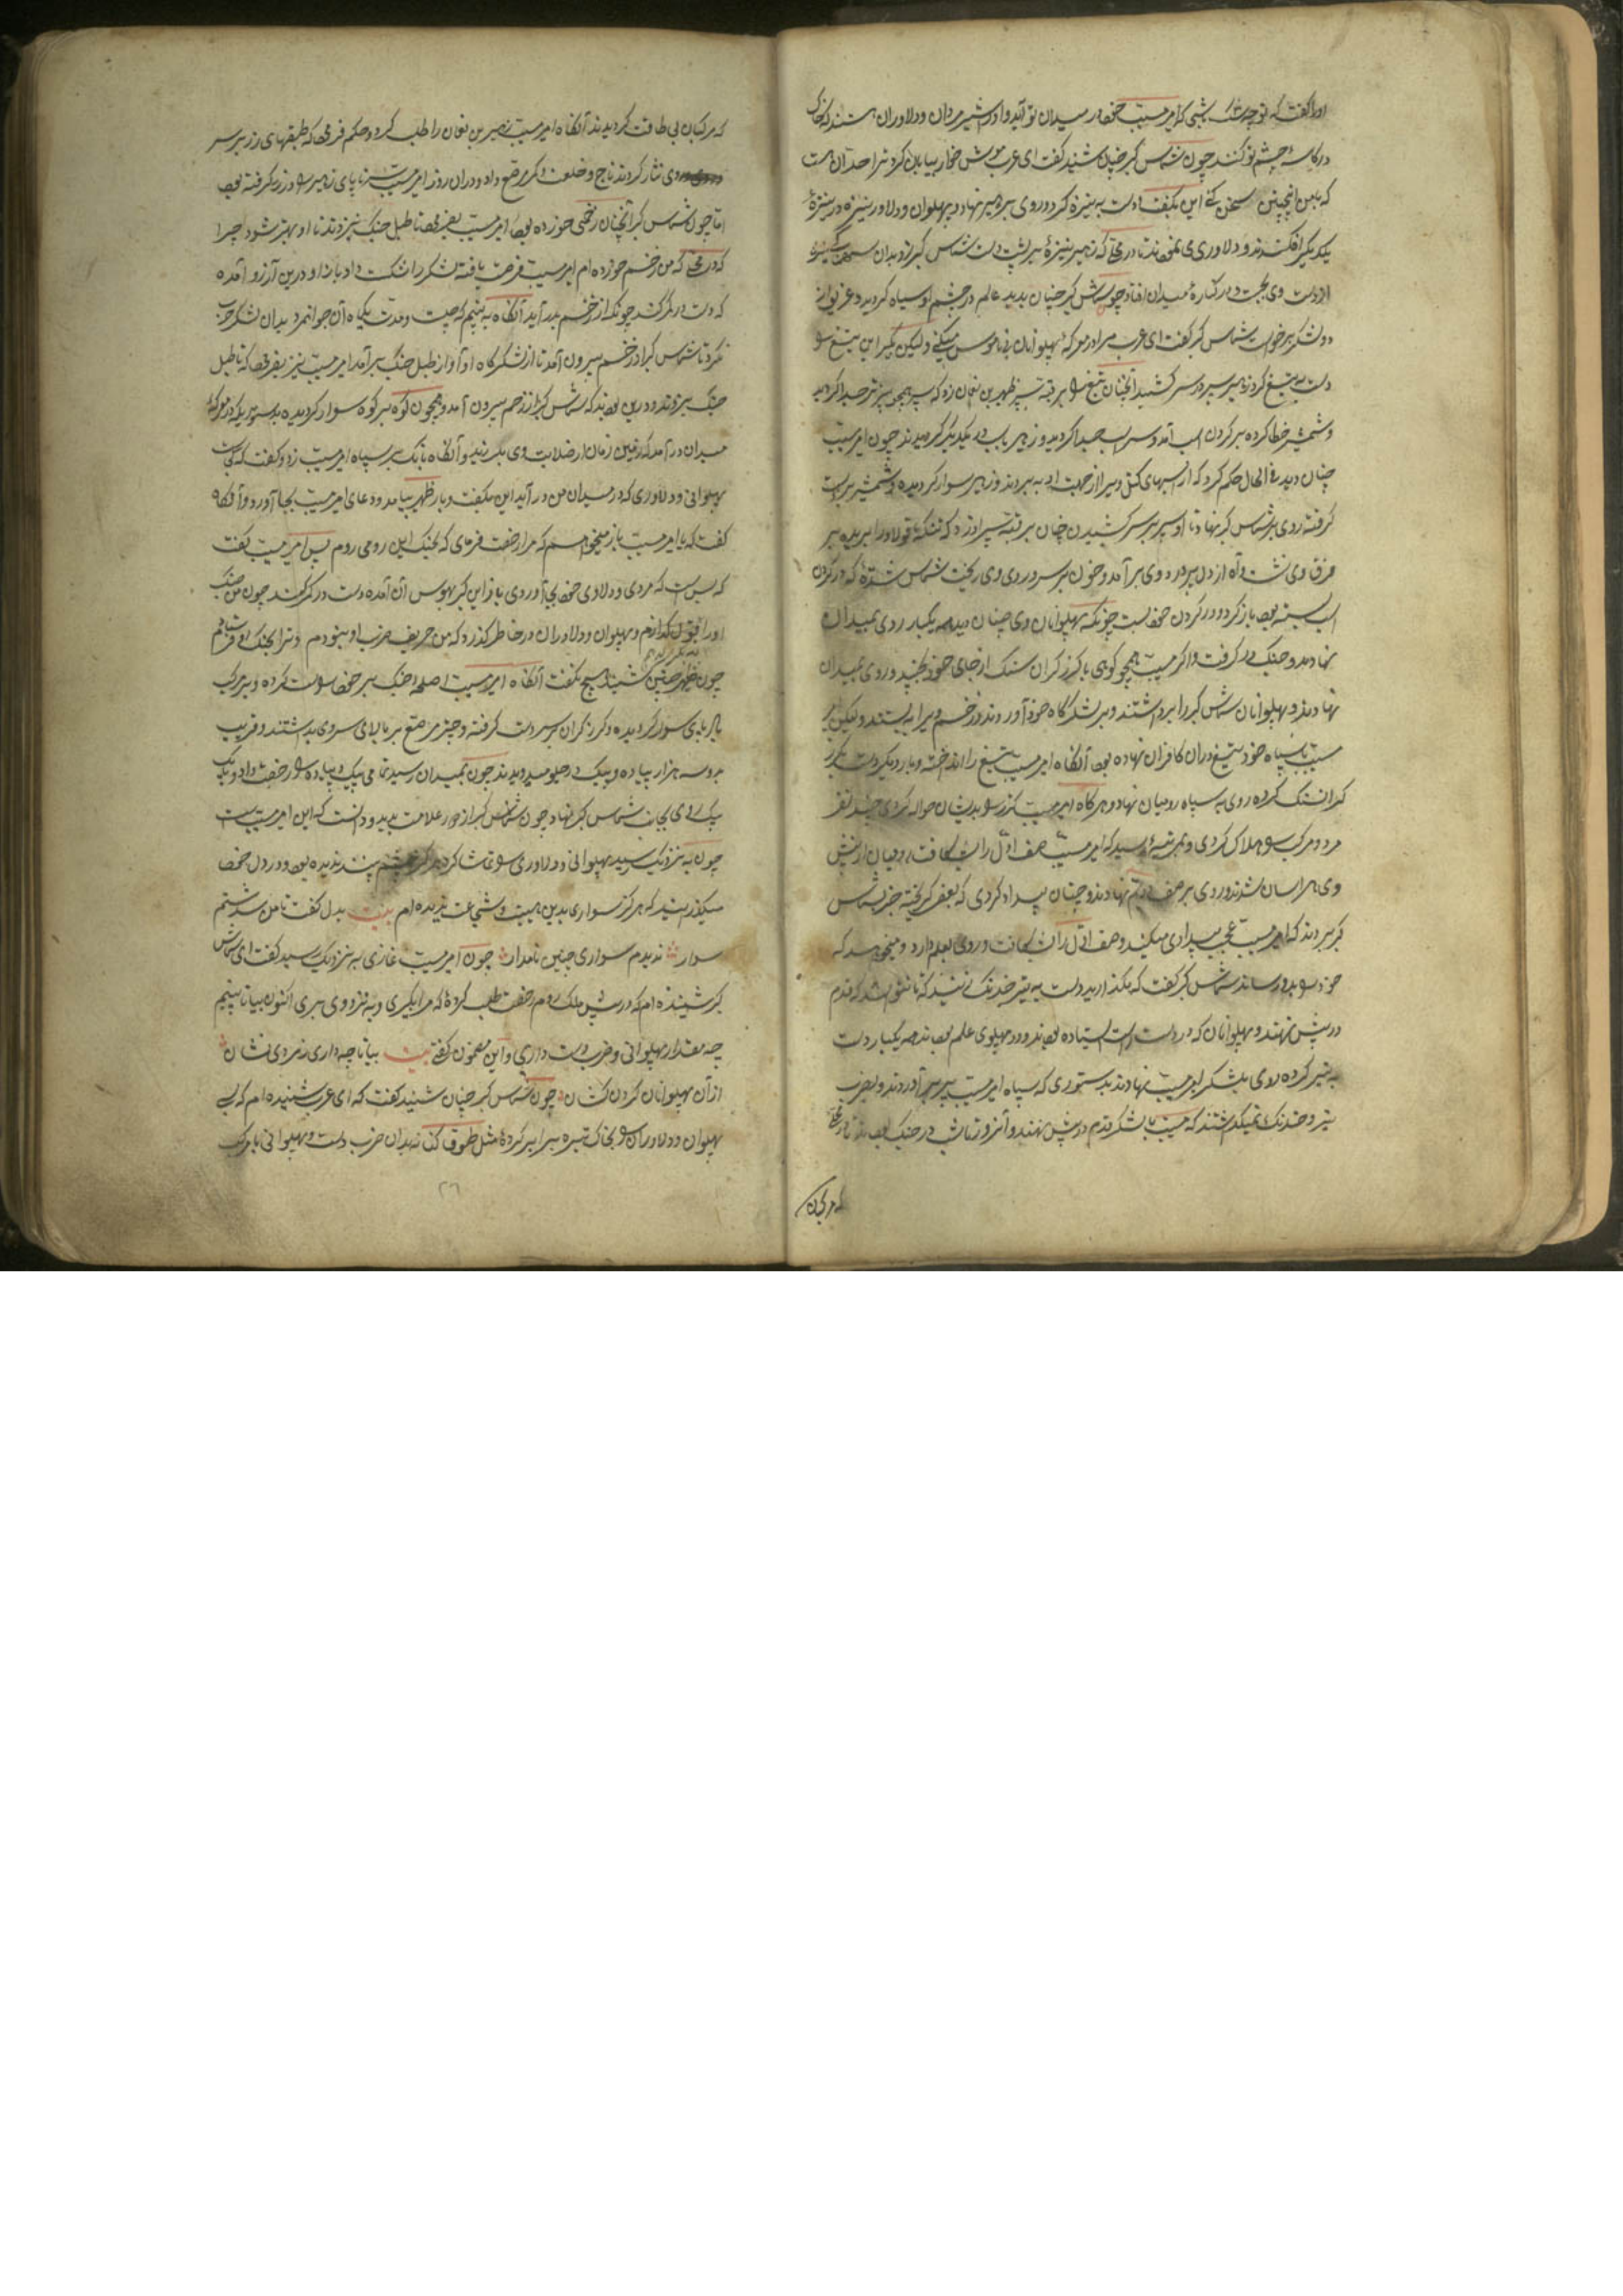 اورا گفت که تو چه سگ باشی که امیر مسیب خود در میدان تو آید و اورا شیر مردان و دلاوران هستند که خاک
در کاسه چشم تو کنند چون شماس گبر چنان شنید گفت ای عرب موش خوار بیابان گرد ترا حد آن هست
که با من اینچنین سخن کنی این بگفت و دست به نیزه کرد و روی بر زهیر نهاد دو پهلوان و دلاور نیزه در نیزه
یکدیگر افکندند و دلاوری می نمودند تا در محلی که زهیر نیزه بر پشت دست شماس گبر زد بدان
از دست وی بجست و در کناره میدان افتاد چون شماس گبر چنان بدید عالم در چشم او سیاه گردید و غریو از
دو لشکر برخواست شماس گبر گفت ای عرب مرا در معرکه پهلوانان بی ناموس میکنی ولیکن بگیر این تیغ را
دست به تیغ کرد زهیر سپر در سر کشید آنچنان تیغ را بر قبه سپر زهیر بن نعمان زد که سپر همچو پنیر تر جدا گردید
و شمشیر خطا کرده بر گردن اسب آمد و سر اسب جدا گردید و زهیر چون امیر مسیب
چنان دید فی الحال حکم کرد که از اسبهای کتل و سپر از جهت او به بردند و زهیر سوار گردیده و شمشیر بر دست
گرفته روی بر شماس گبر نهاد تا او سپر بر سر کشیدن چنان بر قبه سپر او زد که تنکه فولاد را بریده بر
فرق وی نشست و آه از دل پر درد وی بر آمد و خون بر سر و روی وی ریخت شماس که در گردن
اسب بسته بود باز کرد و در گردن خود بست چونکه پهلوانان وی چنان دیدند یکبار روی بمیدان
نهادند و جنگ در گرفت و امیر مسیب همچو کوهی با گرز گران سنگ از جای خود بجنبید و روی بمیدان
نهادند و پهلوانان شماس گبر را برداشتند و بر لشکرگاه خود آوردند و زخم ویرا به بستند ولیکن امیر
مسیب با سپاه خود تیغ در آن کافران نهاده بود آنگاه امیر مسیب تیغ را انداخته و بار دیگر دست بگرز
گران سنگ کرده روی به سپاه رومیان نهاد و هرگاه امیر مسیب گرز را بدیشان حواله کردی چند نفر
مرد و مرکب را هلاک کردی و بمرتبه رسید که امیر مسیب صف اول را بشکافت رومیان از پیش
وی هراسان شدند و روی بر صف دویم نهادند و چنان بیداد کردی که بعضی گریخته خبر شماس
گبر بردند که امیر مسیب عجب بیدادی میکند و صف اول را بشکافت و روی بعلم دارد و میخواهد که
خود را بدو رساند شماس گبر گفت که مگذارید دست به تیر خدنگ زنید که تا نتواند که قدم
در پیش نهند و پهلوانان که در دست راست ایستاده بودند و در پهلوی علم بودند همه یکبار دست
به تیر کرده روی بلشکر امیر مسیب نهادند بدستوری که سپاه امیر مسیب سپر بر سر آوردند و بضرب
تیر و خدنگ نمیگذاشتند که مسیب با لشکر قدم در پیش نهند و آنروز تا شب در جنگ بودند تا در محلی
که مرکبان
که مرکبان بی طاقت گردیدند آنگاه امیر مسیب زهیر بن نعمان را طلب کرد و حکم فرمود که طبقهای زر بر سر
وی نثار کردند و تاج و خلعت و کمر مرصع داد و در آن روز امیر مسیب سر تا پای زهیر را در زر گرفته بود
اما چون شماس گبر آنچنان زخمی خورده بود امیر مسیب بفرمود تا طبل جنگ نزدند تا او بهتر شود چرا
که در محلی که من زخم خورده ام امیر مسیب فرصت یافته لشکر را شکست داد باز او درین آرزو آمده
که دست در کمر کند چونکه از زخم بدر آید آنگاه به بینم که چیست و مدت یکماه آن جوانمرد بدان لشکر حرب
نکرد تا شماس گبر از زخم بیرون آمد تا از لشکرگاه او آواز طبل جنگ بر آمد امیر مسیب نیز بفرمود که تا طبل
جنگ بزدند و درین بودند که شماس گبر از زخم بیرون آمد و همچون کوه بر کوه سوار گردیده بدستوریکه در معرکه
میدان در آمد که زمین و زمان از صلابت وی بلرزید و آنگاه بانگ بر سپاه امیر مسیب زد و گفت که کجاست
پهلوانی و دلاوری که در میدان من در آید این بگفت و باز ظهیر بیامد و دعای امیر مسیب بجا آورد و آنگاه
گفت که یا امیر مسیب باز میخواهم که مرا رخصت فرمای که بجنگ این رومی روم پس امیر مسیب گفت
که بس است که مردی و دلاوری خود بجا آوردی باز این گبر بهوس آن آمده دست در کمر کند چون من جنگ
اورا قبول نکنم و پهلوان و دلاوران در خاطر گذرد که من حریف ضرب او نبودم و ترا بجنگ او فرستادم
چون ظهیر چنین شنید هیچ نگفت آنگاه امیر مسیب اسلحه جنگ بر خود راست کرده و بر مرکب
بادپای سوار گردیده و گرز گران بر سر دست گرفته و چتر مرصع بر بالای سر وی بداشتند و قریب
بدو سه هزار پیاده و پیک در جلو میدویدند چون بمیدان رسید تمامی پیک و پیاده را رخصت داد و یک
یک روی بجانب شماس گبر نهاد چون شماس گبر از دور علامت بدید و دانست که این امیر مسیب است
چون به نزدیک رسید پهلوانی و دلاوری را تماشا کرد که هرگز بچشم پسند ندیده بود و در دل خود
میگذرانید که هرگز سواری بدین هیبت و شجاعت ندیده ام بیت بدل گفت تا من
سوار ندیدم سواری چنین نامدار چون امیر مسیب غازی به نزدیک رسید گفت ای شماس
گبر شنیده ام که در پیش ملک روم رخصت طلب کرده که مرا بگیری و به نزد وی بری اکنون بیا تا ببینم
چه مقدار پهلوانی و ضرب دست داری و این مضمون گفت بیت بیا تا چه داری ز مردی نشان
از آن پهلوانان گردن کشان چون شماس گبر چنان شنید گفت که ای عرب شنیده ام که بسی
پهلوان و دلاوران را بخاک تیره برابر کرده مثل طوق بدان ضرب دست و پهلوانی باد مرکب
۲۶